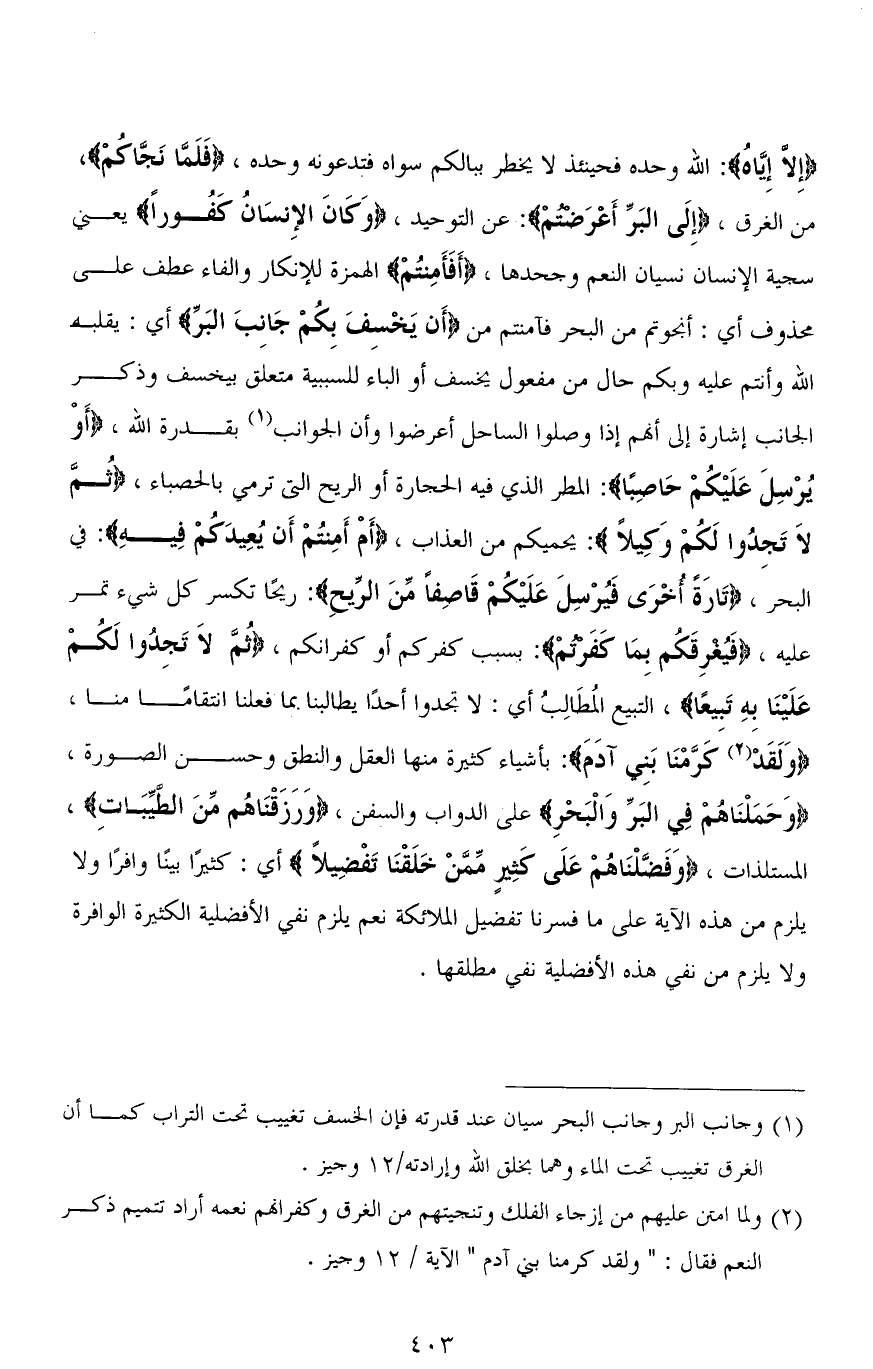 ﴿إِلاَّ إِيَّاهُ﴾: الله وحده فحينئذ لا يخطر ببالكم سواه فتدعونه وحده ، ﴿فَلَمَّا نَجَّاكُمْ﴾،
من الغرق ، ﴿إِلَى البَرِّ أَعْرَضْتُمْ﴾: عن التوحيد ، ﴿وَكَانَ الإِنسَانُ كَفُــوراً﴾ يعــني
سجية الإنسان نسيان النعم وجحدها ، ﴿أَفَأَمِنتُمْ﴾ الهمزة للإنكار والفاء عطف علــى
محذوف أي : أنجوتم من البحر فآمنتم من ﴿أَن يَخْسِفَ بِكُمْ جَانِبَ البَرِّ﴾ أي : يقلبــه
الله وأنتم عليه وبكم حال من مفعول يخسف أو الباء للسببية متعلق بيخسف وذكــر
الجانب إشارة إلى أنهم إذا وصلوا الساحل أعرضوا وأن الجوانب(١) بقــدرة الله ، ﴿أَوْ
يُرْسِلَ عَلَيْكُمْ حَاصِبًا﴾: المطر الذي فيه الحجارة أو الريح التي ترمي بالحصباء ، ﴿ثُــمَّ
لاَ تَجِدُوا لَكُمْ وَكِيلاً ﴾: يحميكم من العذاب ، ﴿أَمْ أَمِنتُمْ أَن يُعِيدَكُمْ فِيــهِ﴾: في
البحر ، ﴿تَارَةً أُخْرَى فَيُرْسِلَ عَلَيْكُمْ قَاصِفاً مِّنَ الرِّيحِ﴾: ريحًا تكسر كل شيء تمــر
عليه ، ﴿فَيُغْرِقَكُم بِمَا كَفَرْتُمْ﴾: بسبب كفركم أو كفرانكم ، ﴿ثُمَّ لاَ تَجِدُوا لَكُــمْ
عَلَيْنَا بِهِ تَبِيعًا﴾ ، التبيع المُطَالِبُ أي : لا تجدوا أحدًا يطالبنا بما فعلنا انتقامًــا منــا ،
﴿وَلَقَدْ(٢) كَرَّمْنَا بَنِي آدَمَ﴾: بأشياء كثيرة منها العقل والنطق وحســن الصــورة ،
﴿وَحَمَلْنَاهُمْ فِي البَرِّ وَالْبَحْرِ﴾ على الدواب والسفن ، ﴿وَرَزَقْنَاهُم مِّنَ الطَّيِّبَــاتِ﴾ ،
المستلذات ، ﴿وَفَضَّلْنَاهُمْ عَلَى كَثِيرٍ مِّمَّنْ خَلَقْنَا تَفْضِيلاً ﴾ أي : كثيرًا بينًا وافرًا ولا
يلزم من هذه الآية على ما فسرنا تفضيل الملائكة نعم يلزم نفي الأفضلية الكثيرة الوافرة
ولا يلزم من نفي هذه الأفضلية نفي مطلقها .
(١) وجانب البر وجانب البحر سيان عند قدرته فإن الخسف تغييب تحت التراب كمــا أن
الغرق تغييب تحت الماء وهما بخلق الله وإرادته/١٢ وجيز .
(٢) ولما امتن عليهم من إزجاء الفلك وتنجيتهم من الغرق وكفرانهم نعمه أراد تتميم ذكــر
النعم فقال : " ولقد كرمنا بني آدم " الآية / ١٢ وجيز .
٤٠٣